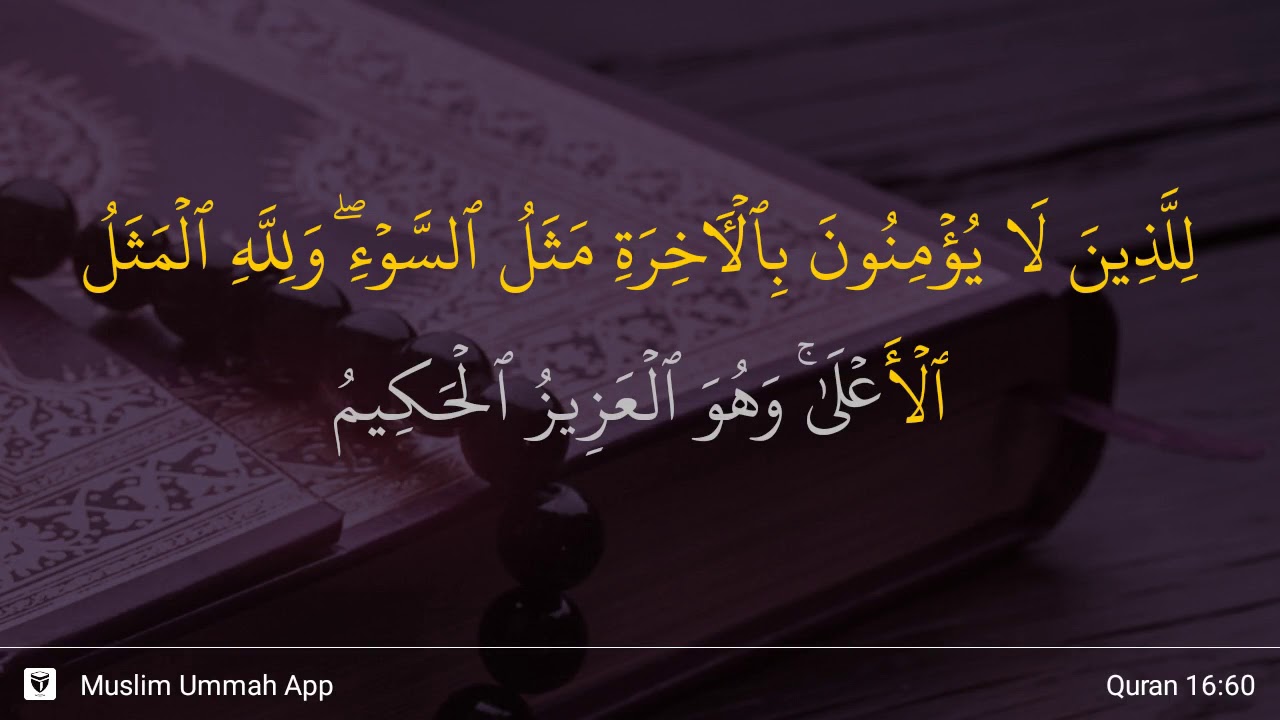 لِلَّذِينَ لَا يُؤۡمِنُونَ بِٱلۡأٓخِرَةِ مَثَلُ ٱلسَّوۡءِۖ وَلِلَّهِ ٱلۡمَثَلُ
ٱلۡأَعۡلَىٰۚ وَهُوَ ٱلۡعَزِيزُ ٱلۡحَكِيمُ
Muslim Ummah App
Quran 16:60